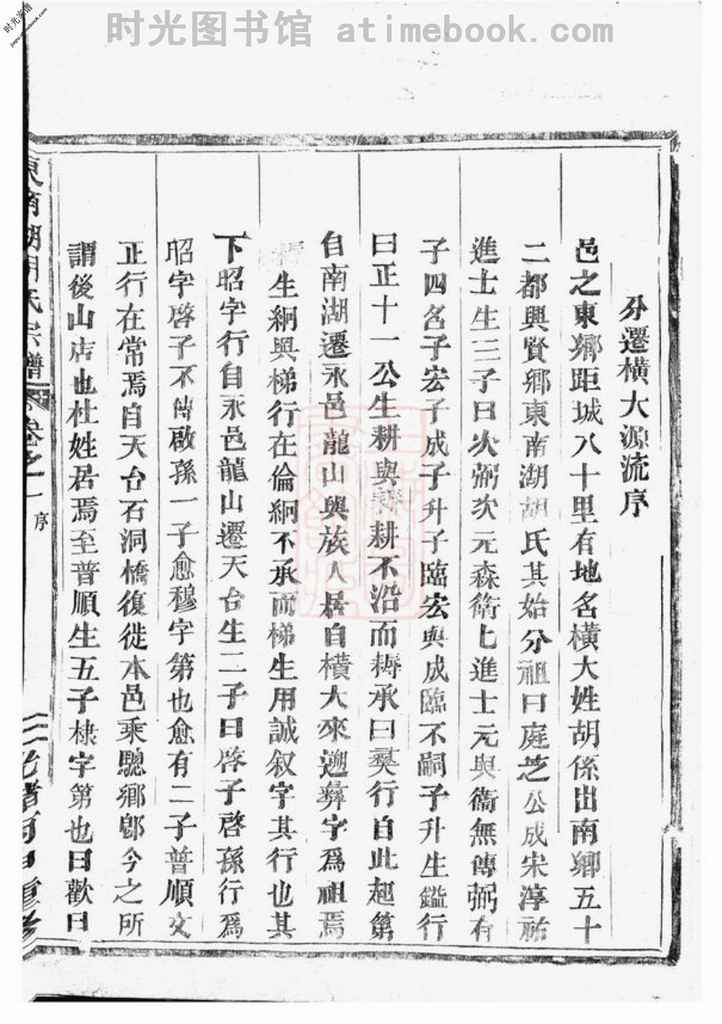 时光图书馆 atimebook.com
分遷橫大源流序
邑之東鄉距城八十里有地名橫大姓胡係出南鄉五十
二都興賢鄉東南湖胡氏其始分祖曰庭芝公成宋淳祐
進士生三子曰次弼次元森衛七進士元與衛無傳弼有
子四名子宏子成子升子臨宏與成臨不嗣子升生鎰行
曰正十一公生耕與耨耕不沿而耨承曰爽行自此起第
自南湖遷永邑龍山與族人居自橫大來遡彝字為祖焉
生絅與梯行在倫絅不承而梯生用誠叙字其行也其
下昭字行自永邑龍山遷天台生二子曰啓子啓孫行為
昭字啓子不傳啟孫一子愈穆字第也愈有二子普順文
正行在常焉自天台石洞橋復徙本邑乘驄鄉鄣今之所
謂後山店也杜姓居焉至普順生五子棣字第也曰歡曰
東南湖胡氏宗譜 卷之一 序
二 光緒丙申重修